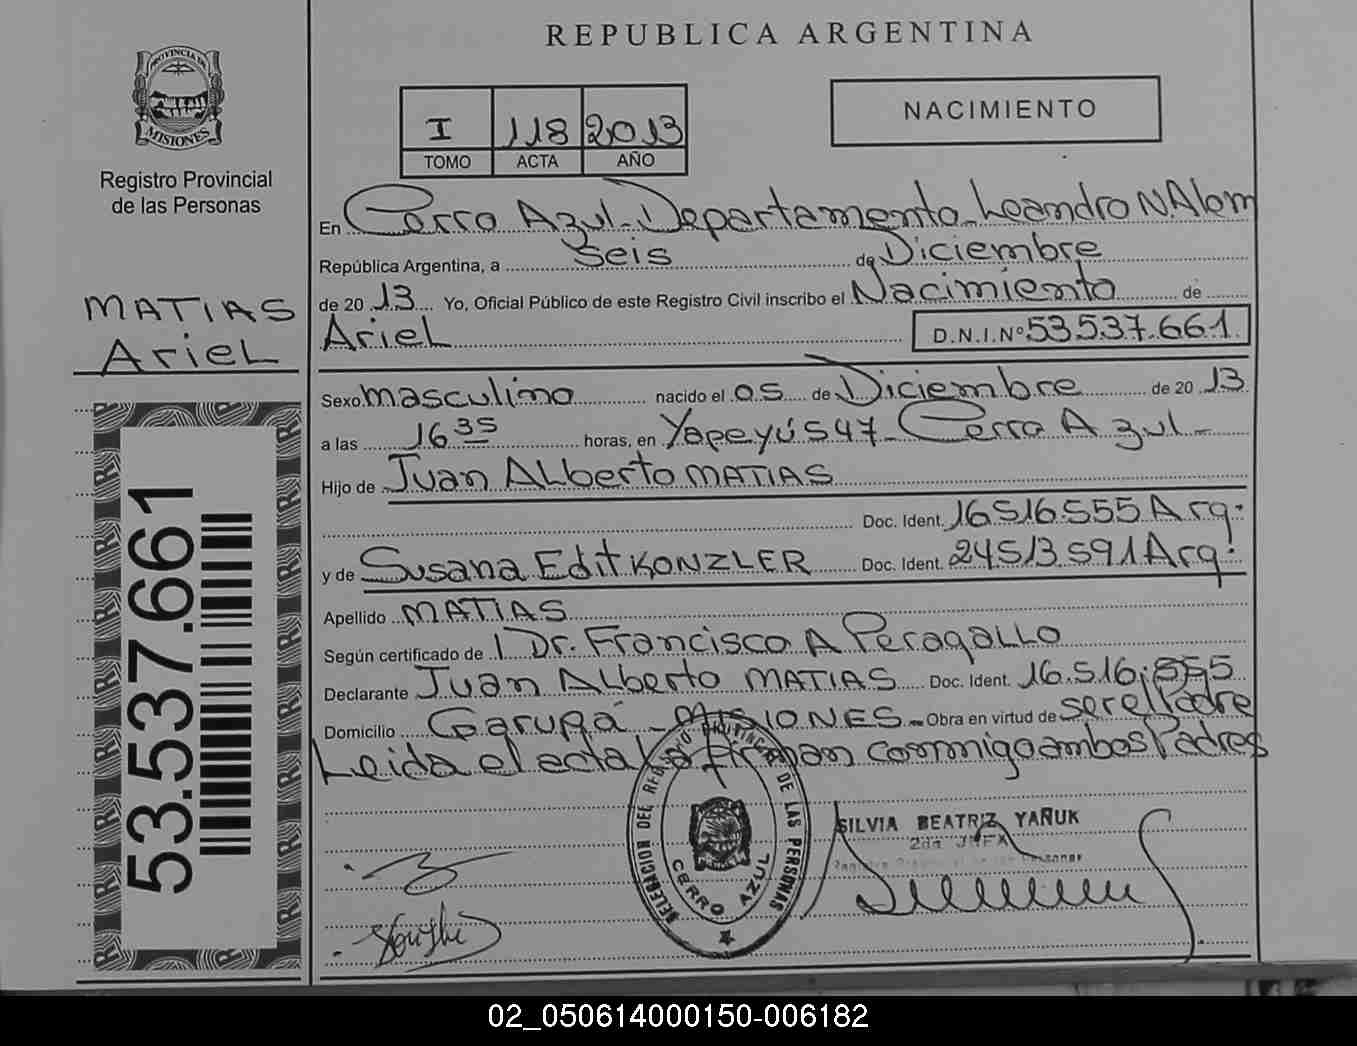 REPUBLICA ARGENTINA
PROVINCIA DE
MISIONES
Registro Provincial
de las Personas
I 118 2013
TOMO ACTA AÑO
NACIMIENTO
En Cerro Azul - Departamento Leandro N. Alem
República Argentina, a seis de Diciembre
de 2013 Yo, Oficial Público de este Registro Civil inscribo el Nacimiento de
Ariel D.N.I.Nº 53.537.661
MATIAS
Ariel
53.537.661
Sexo masculino nacido el 05 de Diciembre de 2013
a las 16 35 horas, en Yapeyú 547 - Cerro Azul -
Hijo de Juan Alberto MATIAS
Doc. Ident. 16516555 Arg.
y de Susana Edit KONZLER Doc. Ident. 24513591 Arg.
Apellido MATIAS
Según certificado de Dr. Francisco A Peragallo
Declarante Juan Alberto MATIAS Doc. Ident. 16.516.555
Domicilio Garupá - MISIONES - Obra en virtud de ser el Padre
Leida el acta la firman conmigo ambos Padres
DELEGACION DEL REGISTRO PROVINCIAL DE LAS PERSONAS
CERRO AZUL
SILVIA BEATRIZ YAÑUK
2da JEFA
Registro Provincial de las Personas
02_050614000150-006182